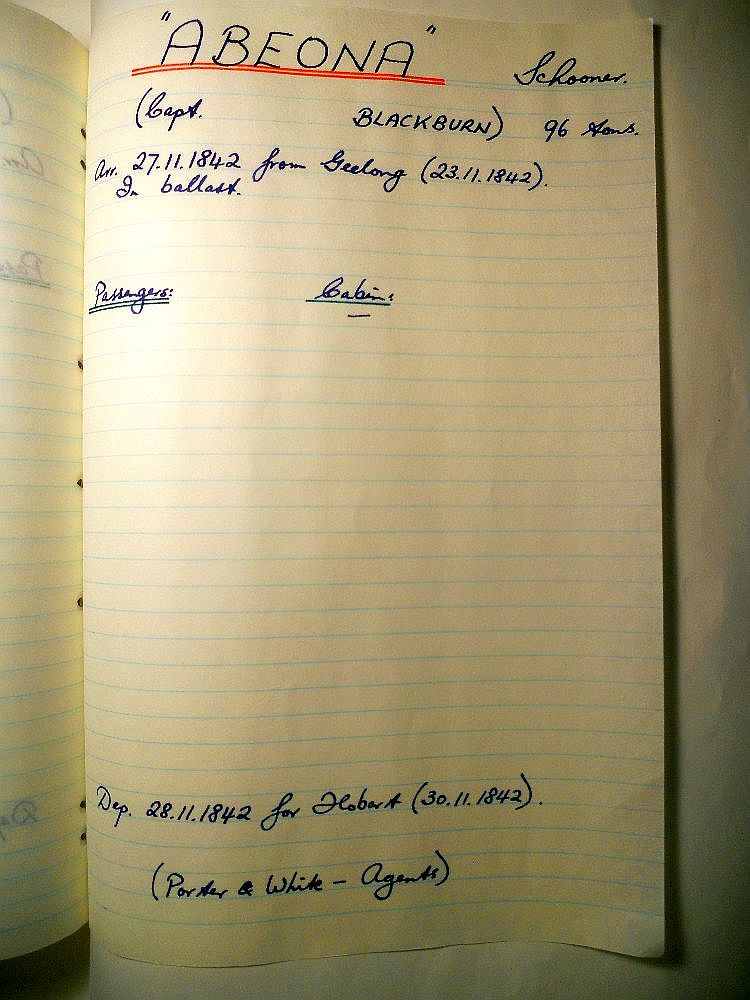 "ABEONA" Schooner.
(Capt. BLACKBURN) 96 tons.
Arr. 27.11.1842 from Geelong (23.11.1842).
In ballast.
Passengers: Cabin:
—
Dep. 28.11.1842 for Hobart (30.11.1842).
(Porter & White – Agents)